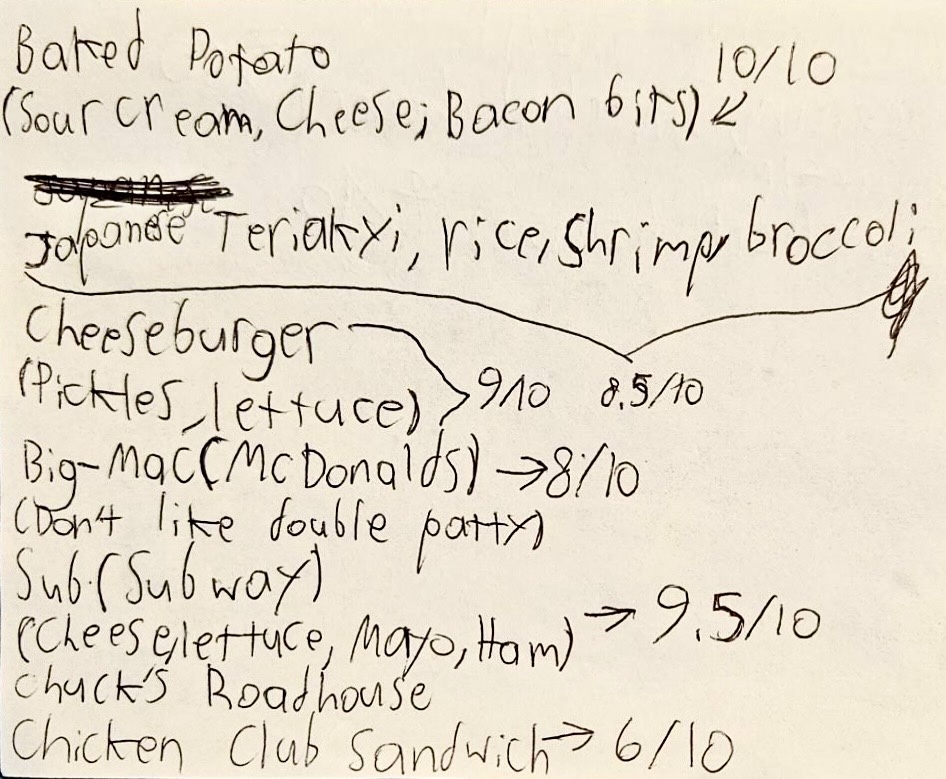 Baked Potato
10/10
(Sour cream, Cheese; Bacon bits)
Japanese Teriakyi, rice, shrimp, broccoli
Cheeseburger
(Pickles, lettuce) 9/10 8.5/10
Big-Mac (McDonalds) → 8/10
(Don't like double patty)
Sub (Subway)
(Cheese, lettuce, Mayo, Ham) → 9.5/10
Chuck's Roadhouse
Chicken Club Sandwich → 6/10